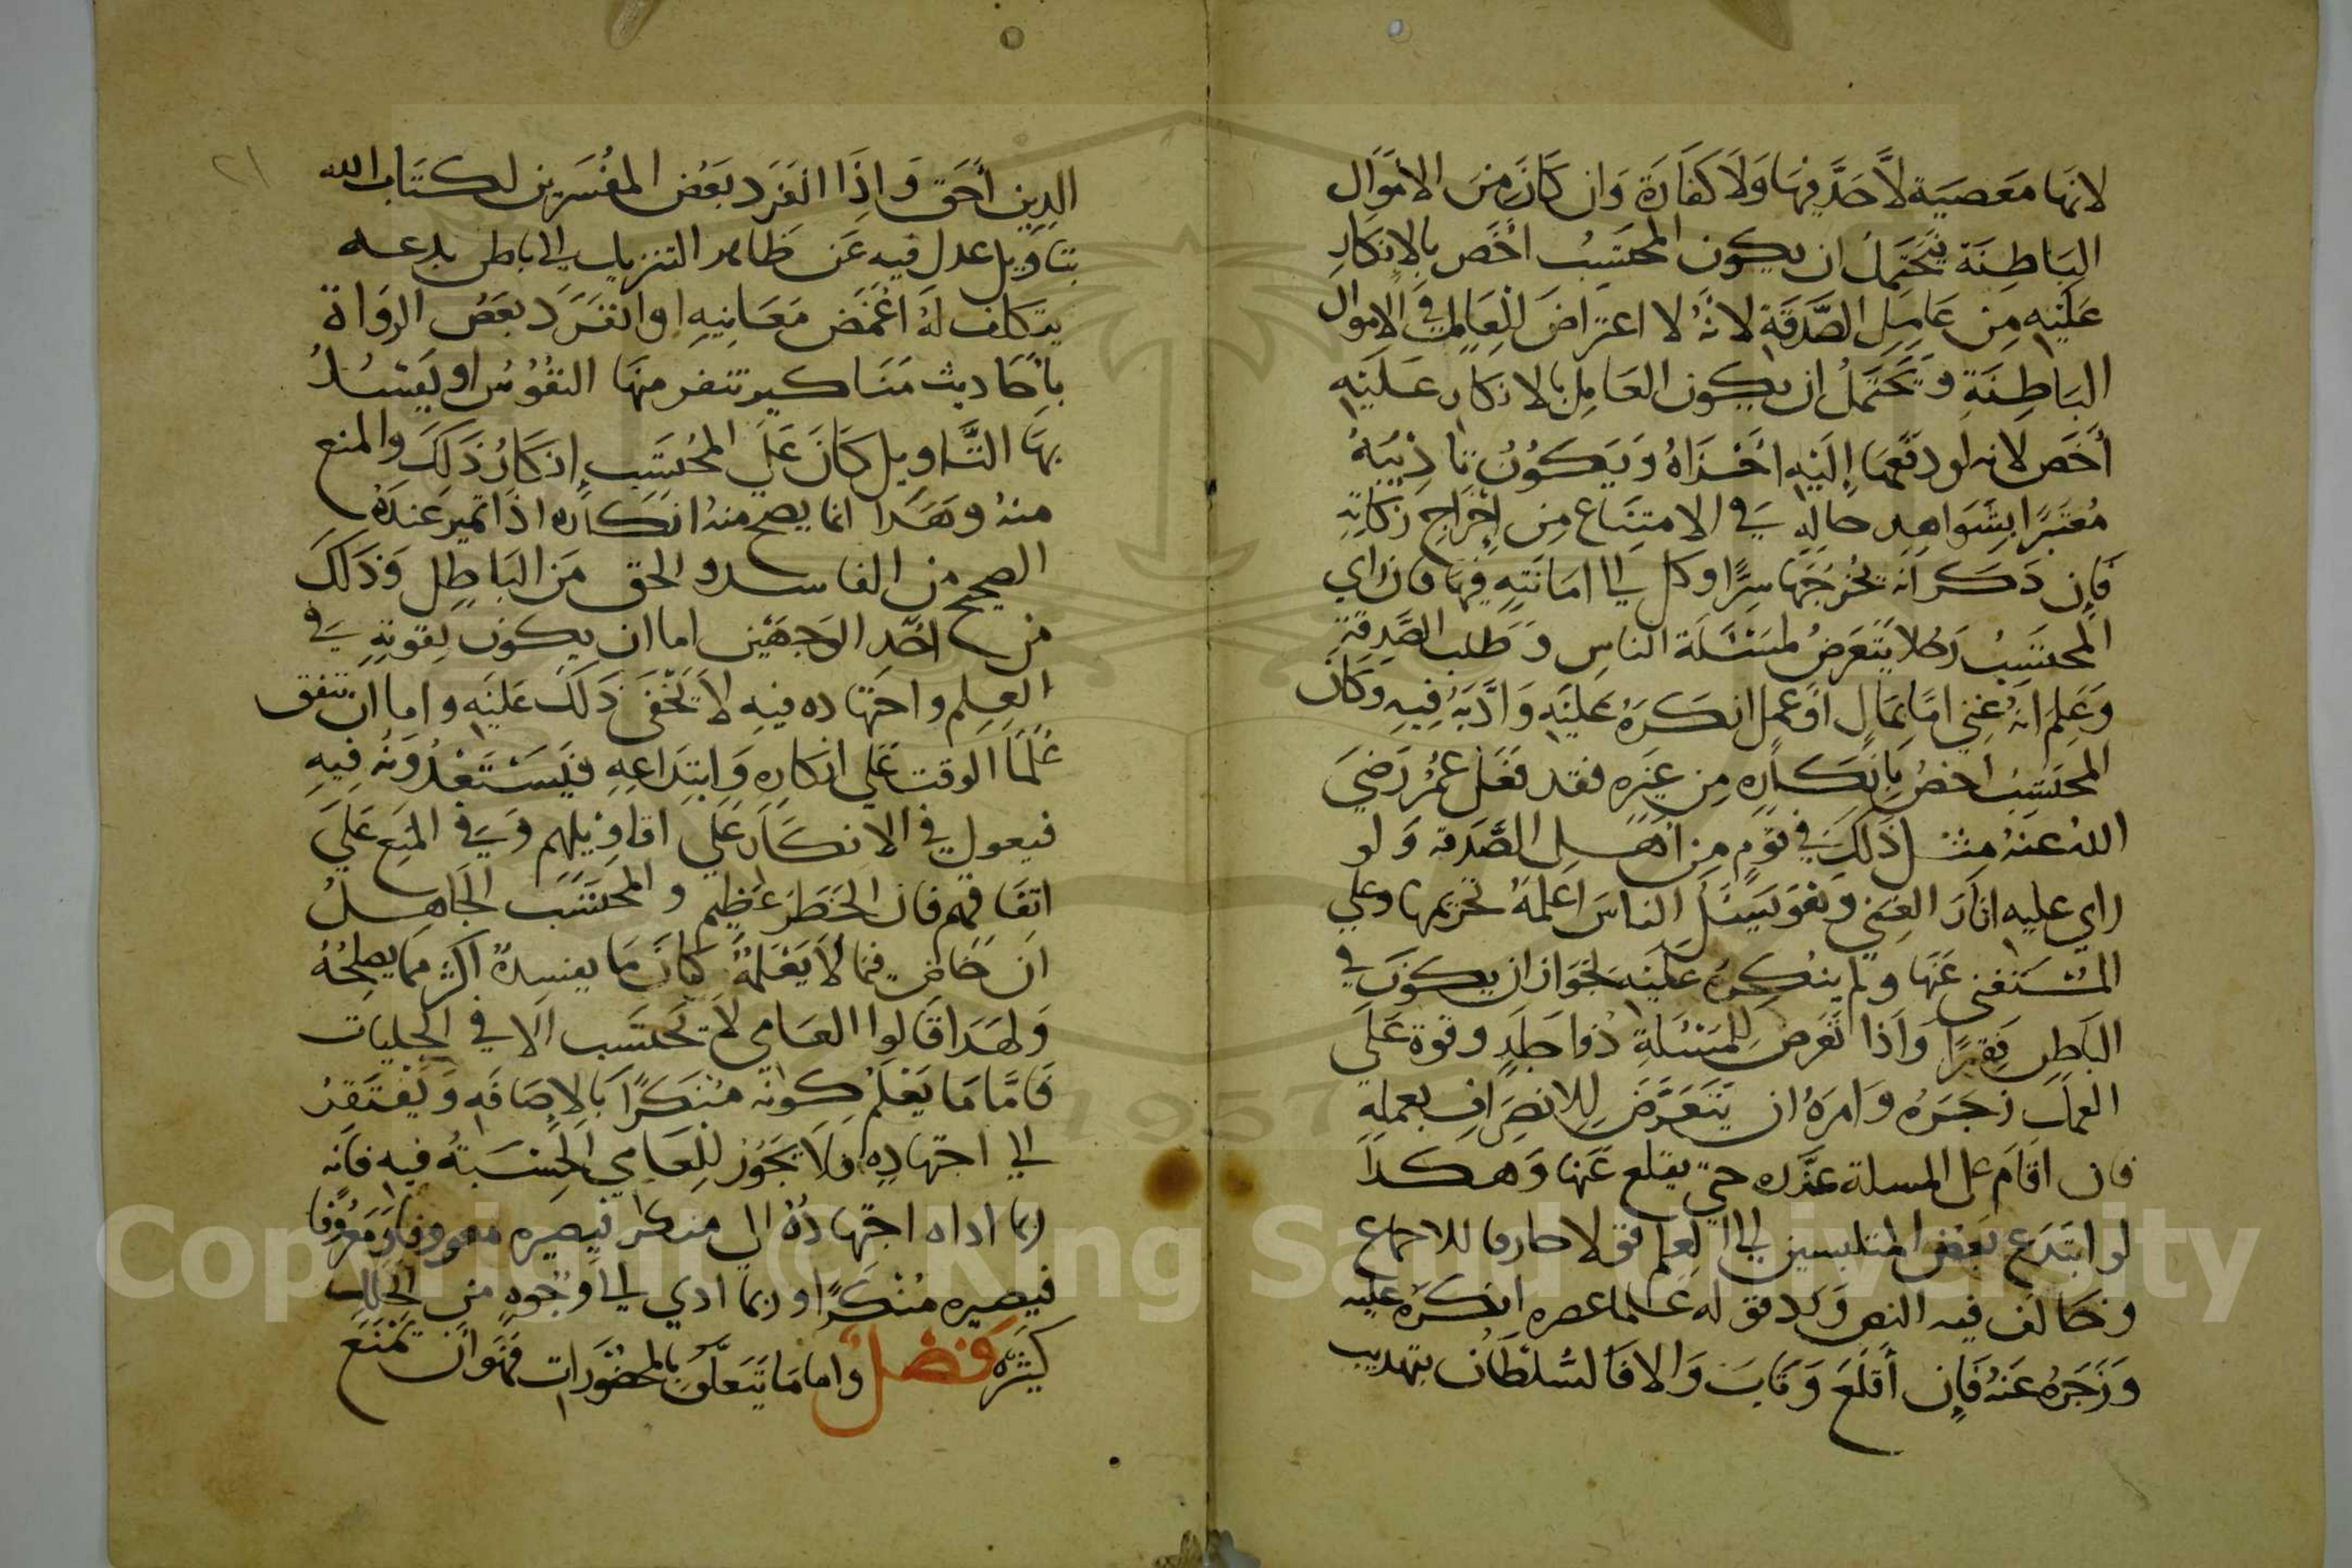 لانها معصية لا حد فيها ولا كفارة وان كان من الاموال
الباطنة فيحتمل ان يكون المحتسب اخص بالانكار
عليه من عامل الصدقة لانه لا اعتراض للعامل في الاموال
الباطنة ويحتمل ان يكون العامل بالانكار عليه
أخص لانه لو دفعها إليه اجزاه ويكون تاديبه
معتبرا بشواهد حاله في الامتناع من إخراج زكاته
فإن ذكر انه يخرجها سرا وكل الي امانته فيها فان راي
المحتسب رجلا يتعرض لمسئلة الناس وطلب الصدقة
وعلم انه غني اما بمال او عمل انكره عليه وادبه فيه وكان
المحتسب اخص بانكاره من غيره فقد فعل عمر رضي
الله عنه مثل ذلك في قوم من اهل الصدقة ولو
راي عليه اثار الغني وهو يسئل الناس اعلمه تحريمها وعلي
المستغني عنها ولم ينكره عليه لجواز ان يكون في
الباطن فقيرا واذا تعرض للمسئلة ذوا جلد وقوة علي
العمل زجره وامره ان يتعرض للانصراف بعمله
فان اقام علي المسلة عزره حتي يقلع عنها وهكذا
لو ابتدع بعض المنتسبين الي العلم قولا خارقا للاجماع
وخالف فيه النص ورد قوله علما عصره انكره عليه
وزجره عنه فإن أقلع وتاب والا فالسلطان بتهذيب
٢١
الدين أحق واذا انفرد بعض المفسرين لكتاب الله
بتاويل عدل فيه عن ظاهر التنزيل الي باطن بدعه
يتكلف له اغمض معانيه او انفرد بعض الرواة
باحاديث مناكير تنفر منها النفوس او يفسد
بها التاويل كان علي المحتسب إنكار ذلك والمنع
منه وهذا انما يصح منه انكاره اذا تميز عنده
الصحيح من الفاسد والحق من الباطل وذلك
من احد الوجهين اما ان يكون بقوته في
العلم واجتهاده فيه لا يخفي ذلك عليه واما ان تتفق
علما الوقت علي انكاره وابتداعه فيستعدونه فيه
فيعول في الانكار علي اقاويلهم وفي المنع علي
اتفاقهم فان الخطر عظيم والمحتسب الجاهل
ان خاض فيما لا يعلمه كان ما يفسده اكثر مما يصلحه
ولهذا قالوا العامي لا يحتسب الا في الجليات
فاما ما يعلم كونه منكرا بالاضافه ويفتقر
الي اجتهاده فلا يجوز للعامي الحسبة فيه فانه
ربما اداه اجتهاده الي منكر فيصيره معروفا ومعروفا
فيصيره منكرا وربما ادي الي وجوه من الخلل
كثيره فصل واما ما يتعلق بالمحضورات فهو ان يمنع
1957
Copyright © King Saud University